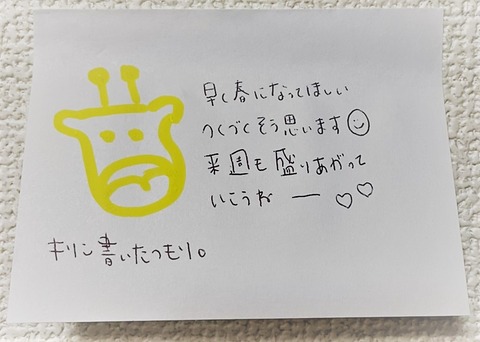 早く春になってほしい
つくづくそう思います
来週も盛りあがって
いこうねー♡♡
キリン書いたつもり。